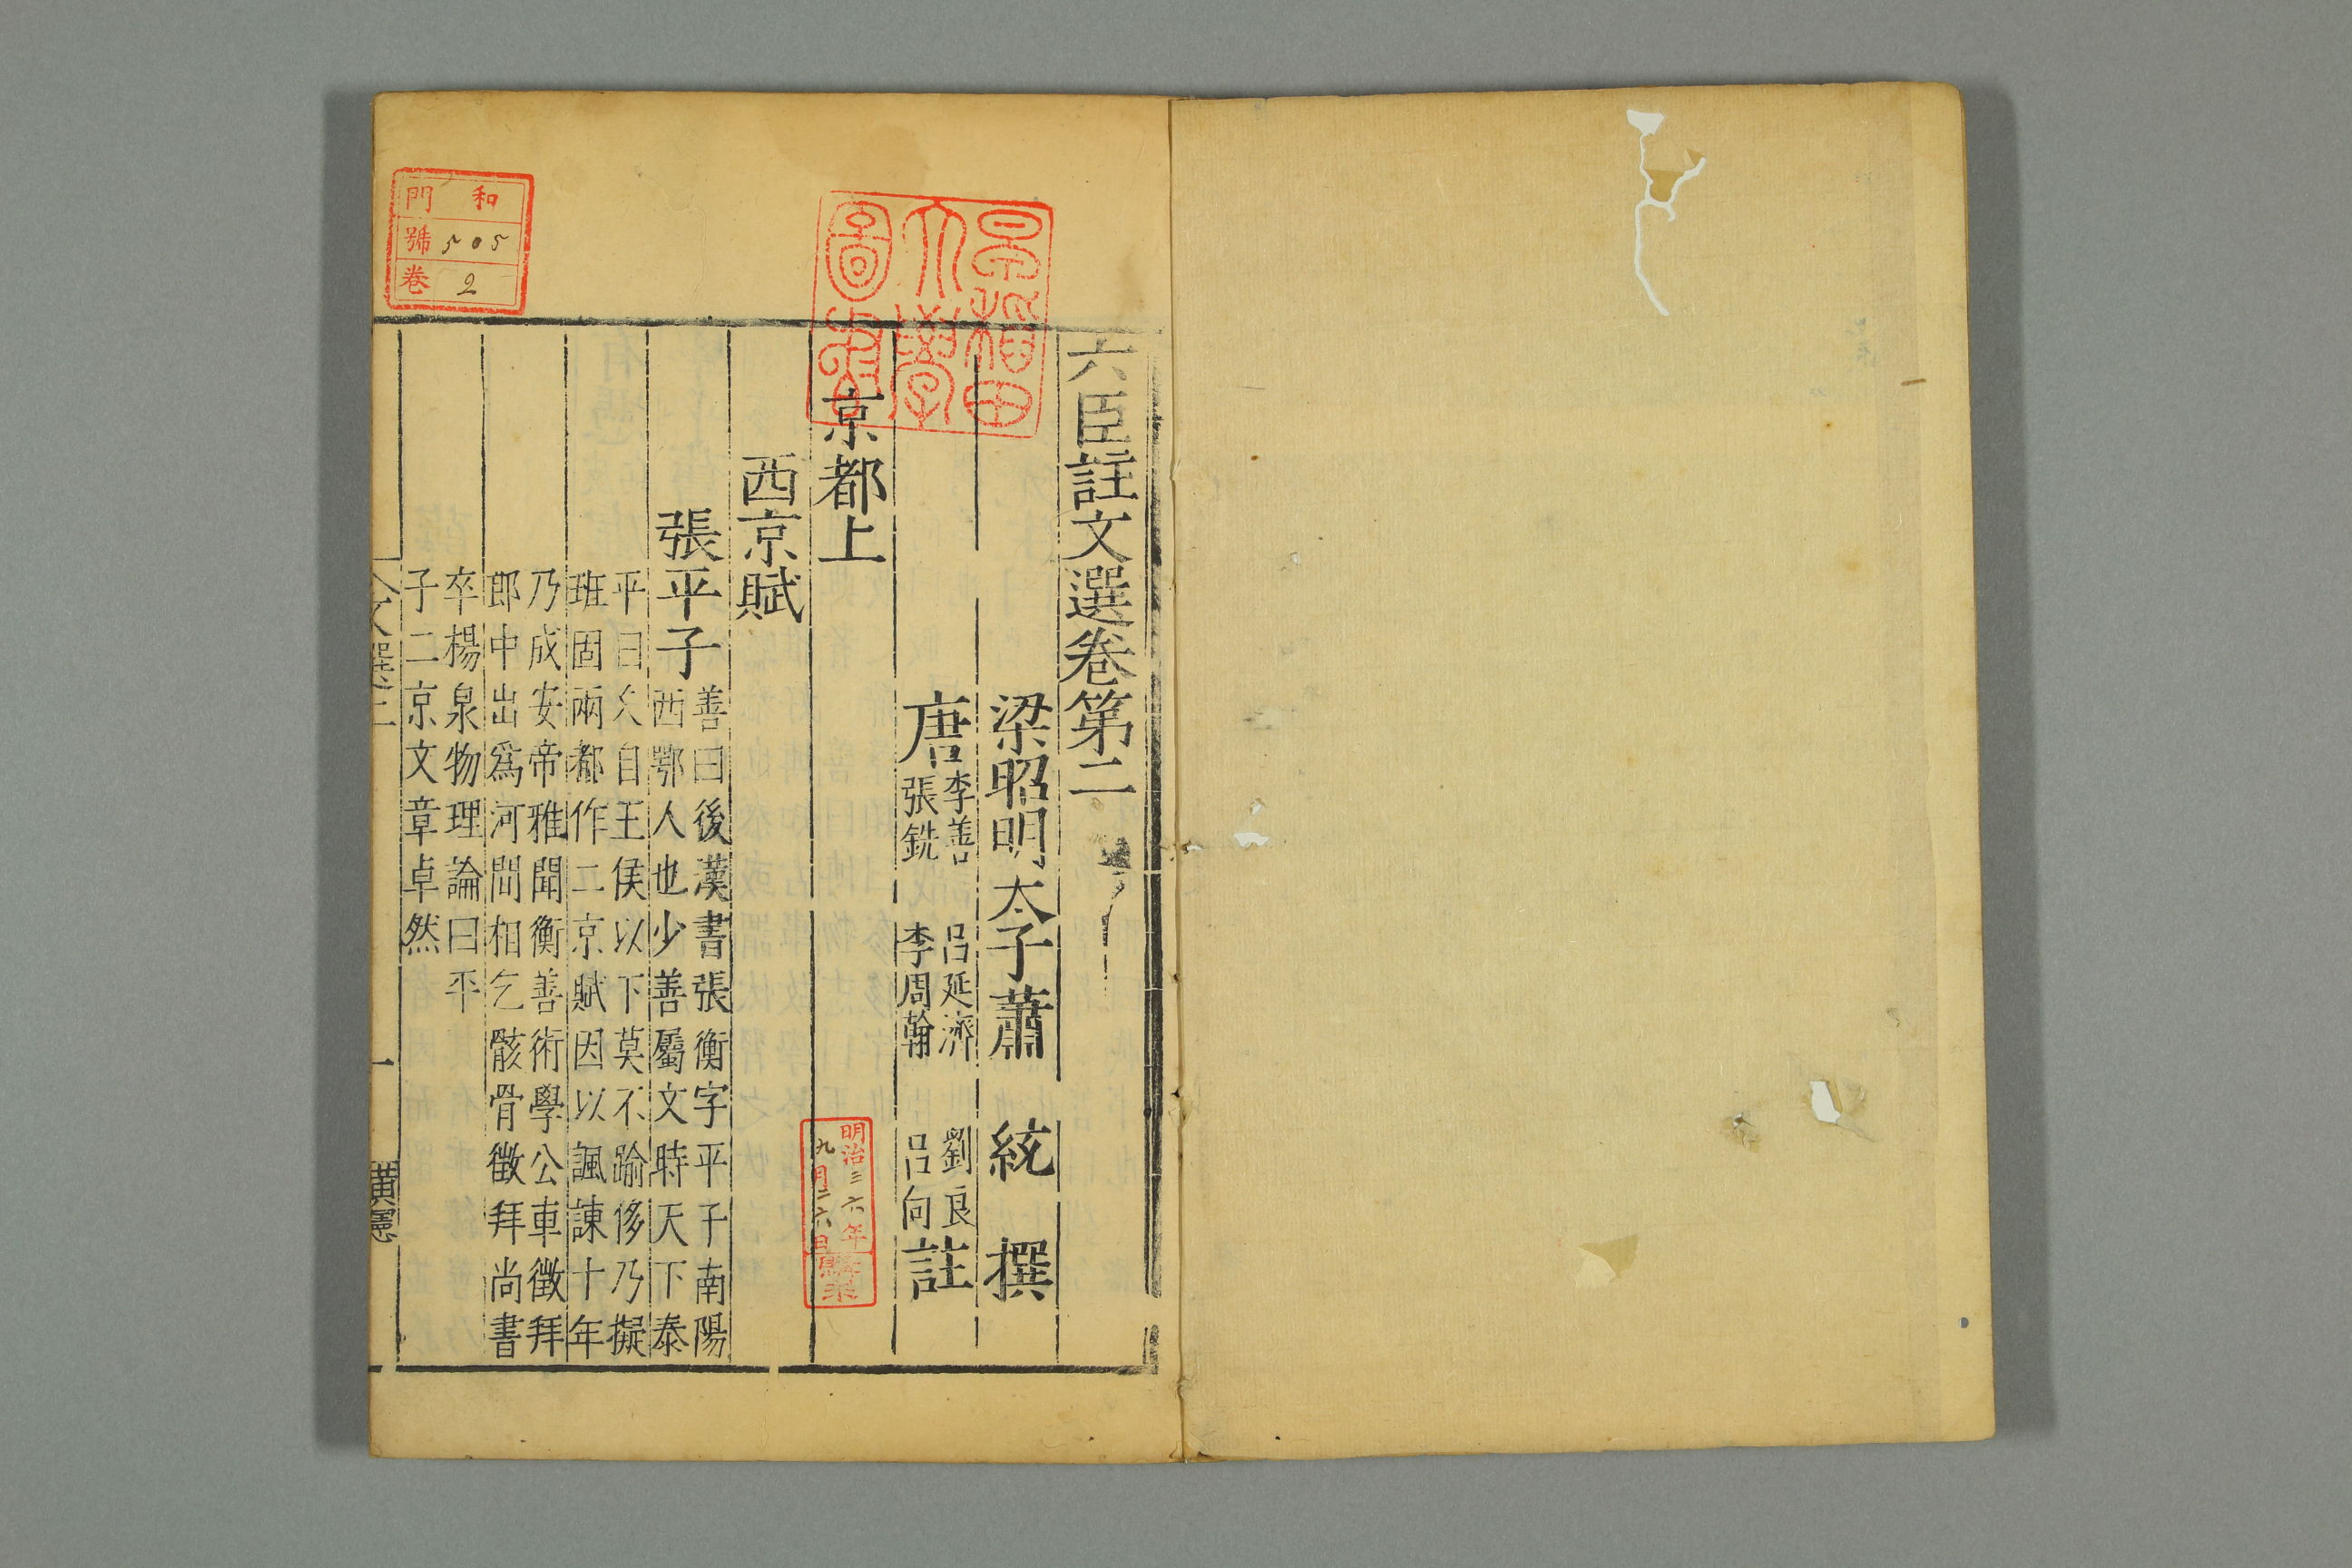 六臣註文選卷第二
梁昭明太子蕭統撰
唐李善呂延濟劉良
張銑李周翰呂向註
京都上
西京賦
張平子善曰後漢書張衡字平子南陽
西鄂人也少善屬文時天下泰
平日久自王侯以下莫不踰侈乃擬
班固兩都作二京賦因以諷諫十年
乃成安帝雅聞衡善術學公車徵拜
郎中出爲河間相乞骸骨徵拜尚書
卒楊泉物理論曰平
子二京文章卓然
文選二
一
早稻田
大學
圖書
和門
505號
2卷
明治三六年
九月二六日
購求